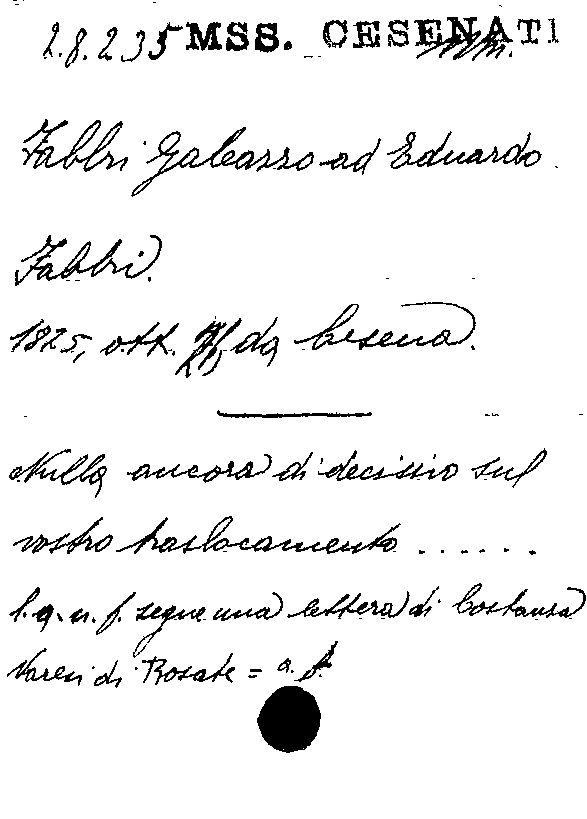 2.8.235 MSS. CESENATI
Fabbri Galeazzo ad Eduardo
Fabbri.
1825, ott. da Cesena.
Nulla ancora di decisivo sul
vostro traslocamento ......
l.a.n.f. segue una lettera di Costanza
Varesi di Rosate = a. f.